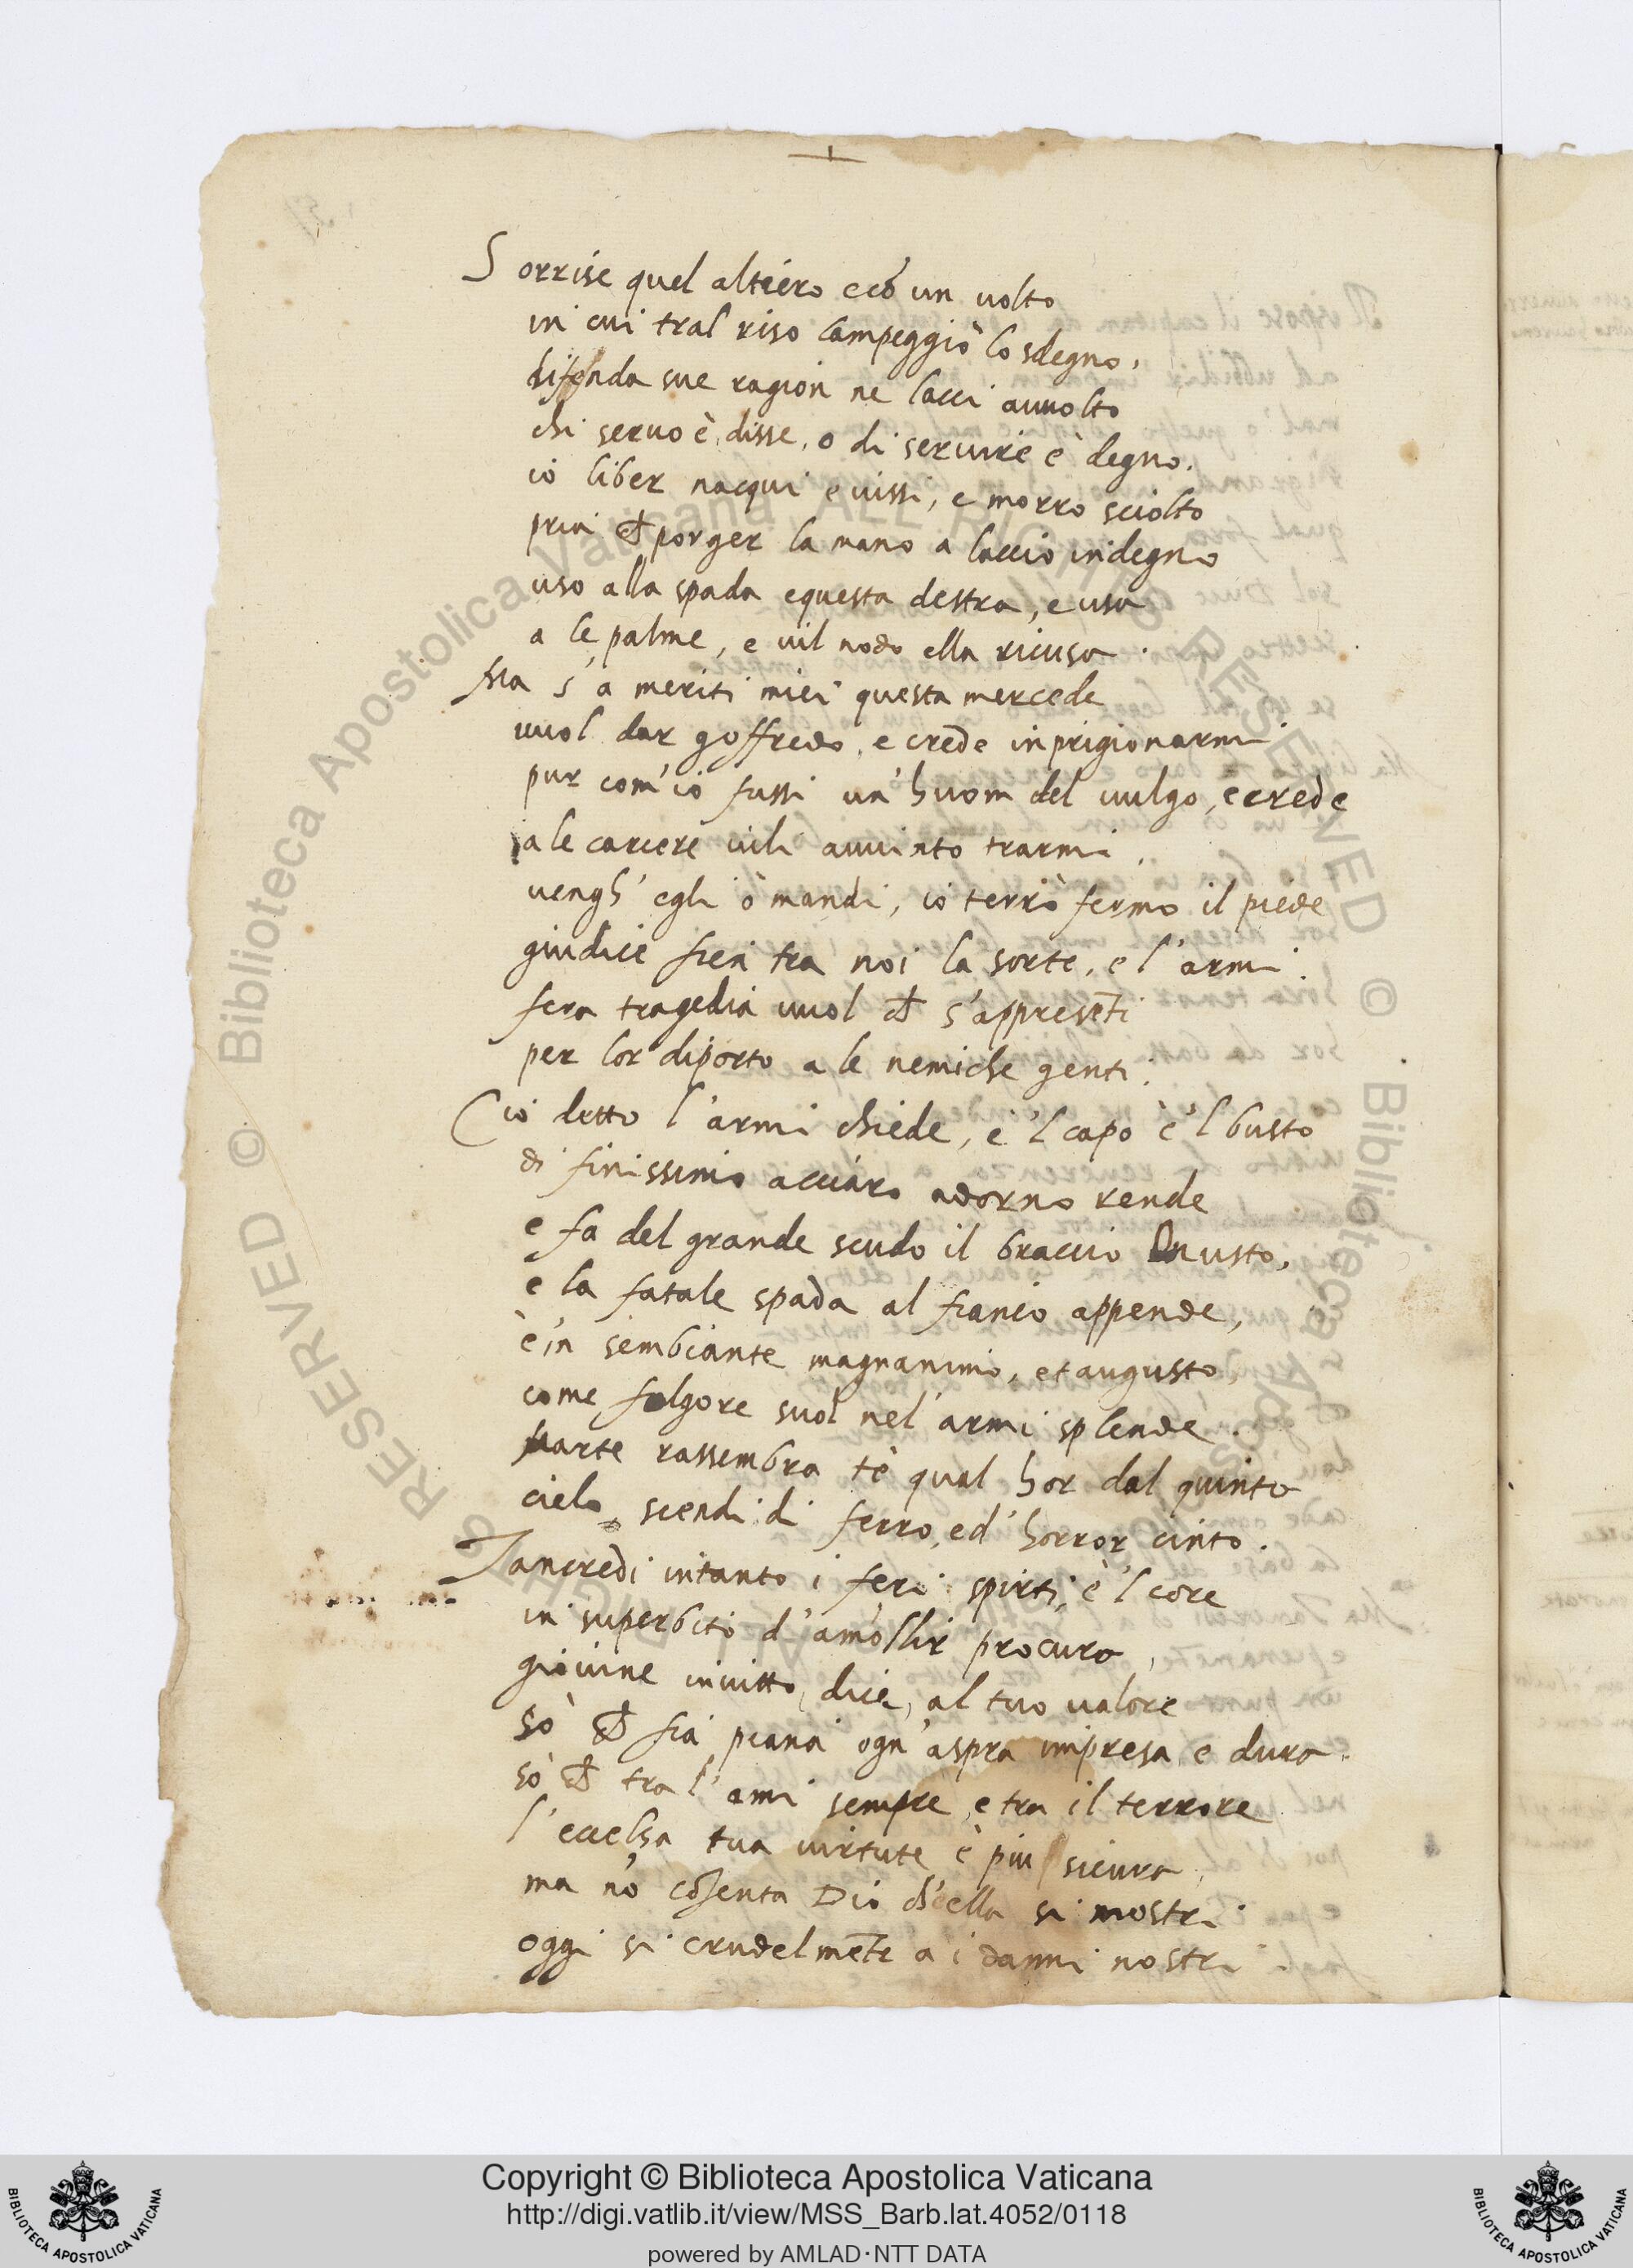 Sorrise quel altiero e cõ un uolto
in cui tral riso lampeggiò lo sdegno,
difenda sue ragion ne lacci auuolto
chi seruo è, disse, o di seruire è degno.
io liber nacqui e uissi, e morro sciolto
pria ch porger la mano a laccio indegno
uso alla spada e questa destra, e usa
a le palme, e uil nodo ella ricusa.
Ma s' a meriti miei questa mercede
uuol dar goffredo, e crede inprigionarmi
pur com' io fussi un' huom del uulgo, e crede
a le carcere uili auuinto trarmi.
uengh' egli ò mandi, io terrò fermo il piede
giudice fien tra noi la sorte, e l' armi.
fera tragedia uuol ch s' appresẽti
per lor diporto a le nemiche genti.
Ciò detto l' armi chiede, e 'l capo è 'l busto
di finissimo acciaro adorno rende
e fa del grande scudo il braccio Onusto,
e la fatale spada al fianco appende,
è in sembiante magnanimo, et augusto,
come folgore suol nel' armi splende.
Marte rassembra tè qual hor dal quinto
cielo scendi di ferro, ed' horror cinto.
Tancredi intanto i feri spirti, è 'l core
in superbito d' amollir procura,
giouine inuitto, dice, al tuo ualore
sò ch fia piana ogn' aspra impresa, e dura.
sò ch tra l' ami sempre, e tra il terrore
l' eccelsa tua uirtute è piu sicura,
ma nõ cõsenta Dio ch' ella si mostri
oggi si crudelmẽte a i danni nostri
Copyright © Biblioteca Apostolica Vaticana
http://digi.vatlib.it/view/MSS_Barb.lat.4052/0118
powered by AMLAD·NTT DATA
BIBLIOTECA APOSTOLICA VATICANA
BIBLIOTECA APOSTOLICA VATICANA